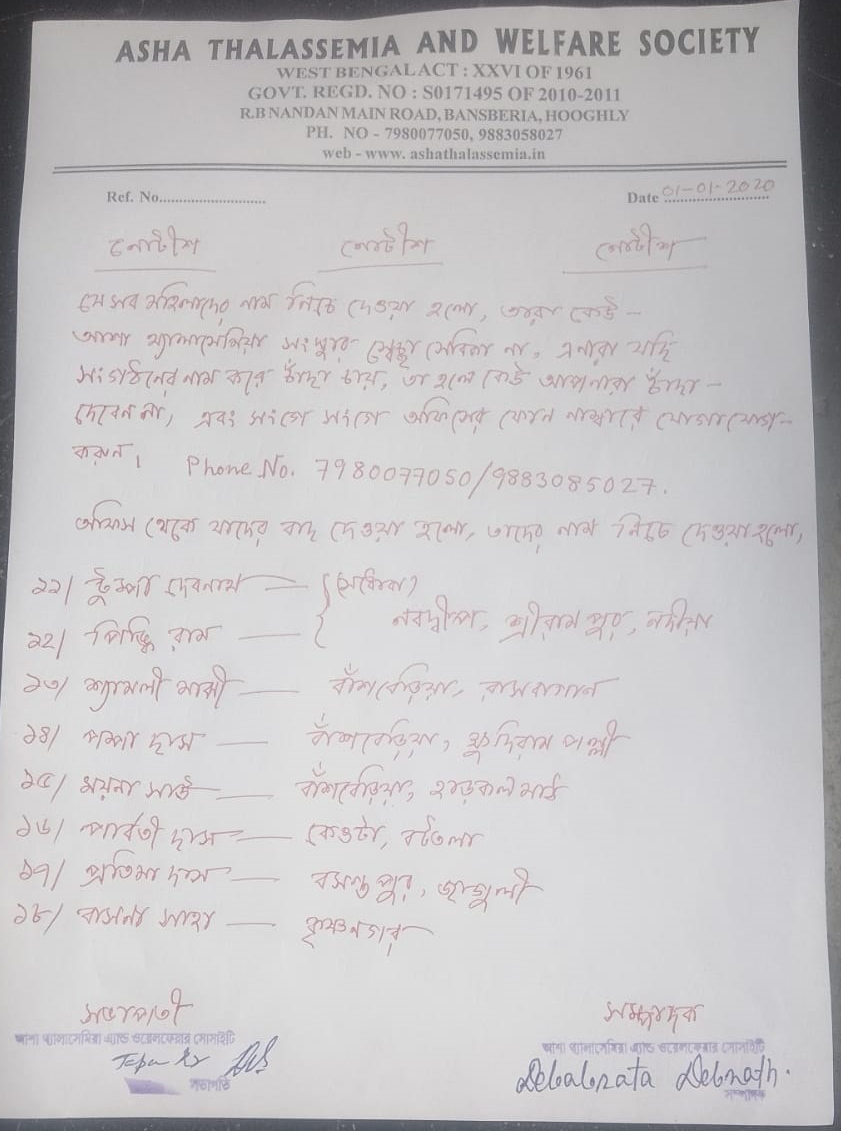 ASHA THALASSEMIA AND WELFARE SOCIETY
WEST BENGAL ACT : XXVI OF 1961
GOVT. REGD. NO : S0171495 OF 2010-2011
R.B NANDAN MAIN ROAD, BANSBERIA, HOOGHLY
PH. NO - 7980077050, 9883058027
web - www. ashathalassemia.in
Ref. No........................... Date 01-01-2020
নোটীশ নোটীশ নোটীশ
যে সব মহিলাদের নাম নিচে দেওয়া হলো, তারা কেউ -
আশা থ্যালাসেমিয়া সংস্থার সেবিকা না, এনারা যদি
সংগঠনের নাম করে চাঁদা চায়, তা হলে কেউ আপনারা চাঁদা -
দেবেন না, এবং সংগে সংগে অফিসের ফোন নাম্বারে যোগাযোগ -
করুন। Phone No. 7980077050/9883085027.
অফিস থেকে যাদের বাদ দেওয়া হলো, তাদের নাম নিচে দেওয়া হলো,
১১/ টুম্পা দেবনাথ — (সেবিকা)
নবদ্বীপ, শ্রীরামপুর, নদীয়া
১২/ পিঙ্কি রাম —
১৩/ শ্যামলী মাঝী — বাঁশবেড়িয়া, রাসবাগান
১৪/ পম্পা দাস — বাঁশবেড়িয়া, ক্ষুদিরাম পল্লী
১৫/ ময়না সাউ — বাঁশবেড়িয়া, হাড়কল মাঠ
১৬/ পার্বতী দাস — কেওটা, বটতলা
১৭/ প্রতিমা দাস — বসন্তপুর, জাগুলী
১৮/ বাসনা সাহা — কৃষ্ণনগর
সভাপতী সম্পাদক
আশা থ্যালাসেমিয়া এ্যান্ড ওয়েলফেয়ার সোসাইটি আশা থ্যালাসেমিয়া এ্যান্ড ওয়েলফেয়ার সোসাইটি
Debabrata Debnath.
সভাপতি সম্পাদক